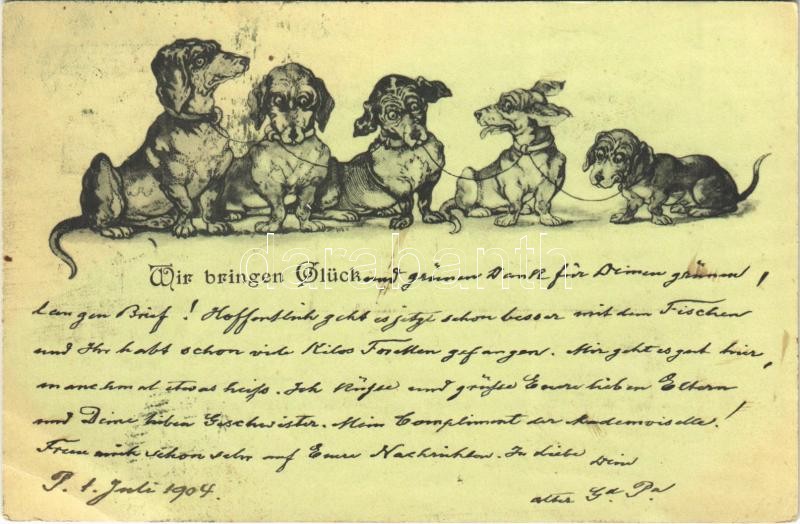 Wir bringen Glück und grünen Dank für Deinen grünen,
langen Brief! Hoffentlich geht es jetzt schon besser mit dem Fischen
und Ihr habt schon viele Kilos Forellen gefangen. Mir geht es gut hier,
manchmal etwas heiß. Ich küsse und grüße Eure lieben Eltern
und Deine lieben Geschwister. Mein Compliment der Mademoiselle!
Freue mich schon sehr auf Eure Nachrichten. In Liebe Dein
P. 1. Juli 1904. alter Gd. Pa
darabanth